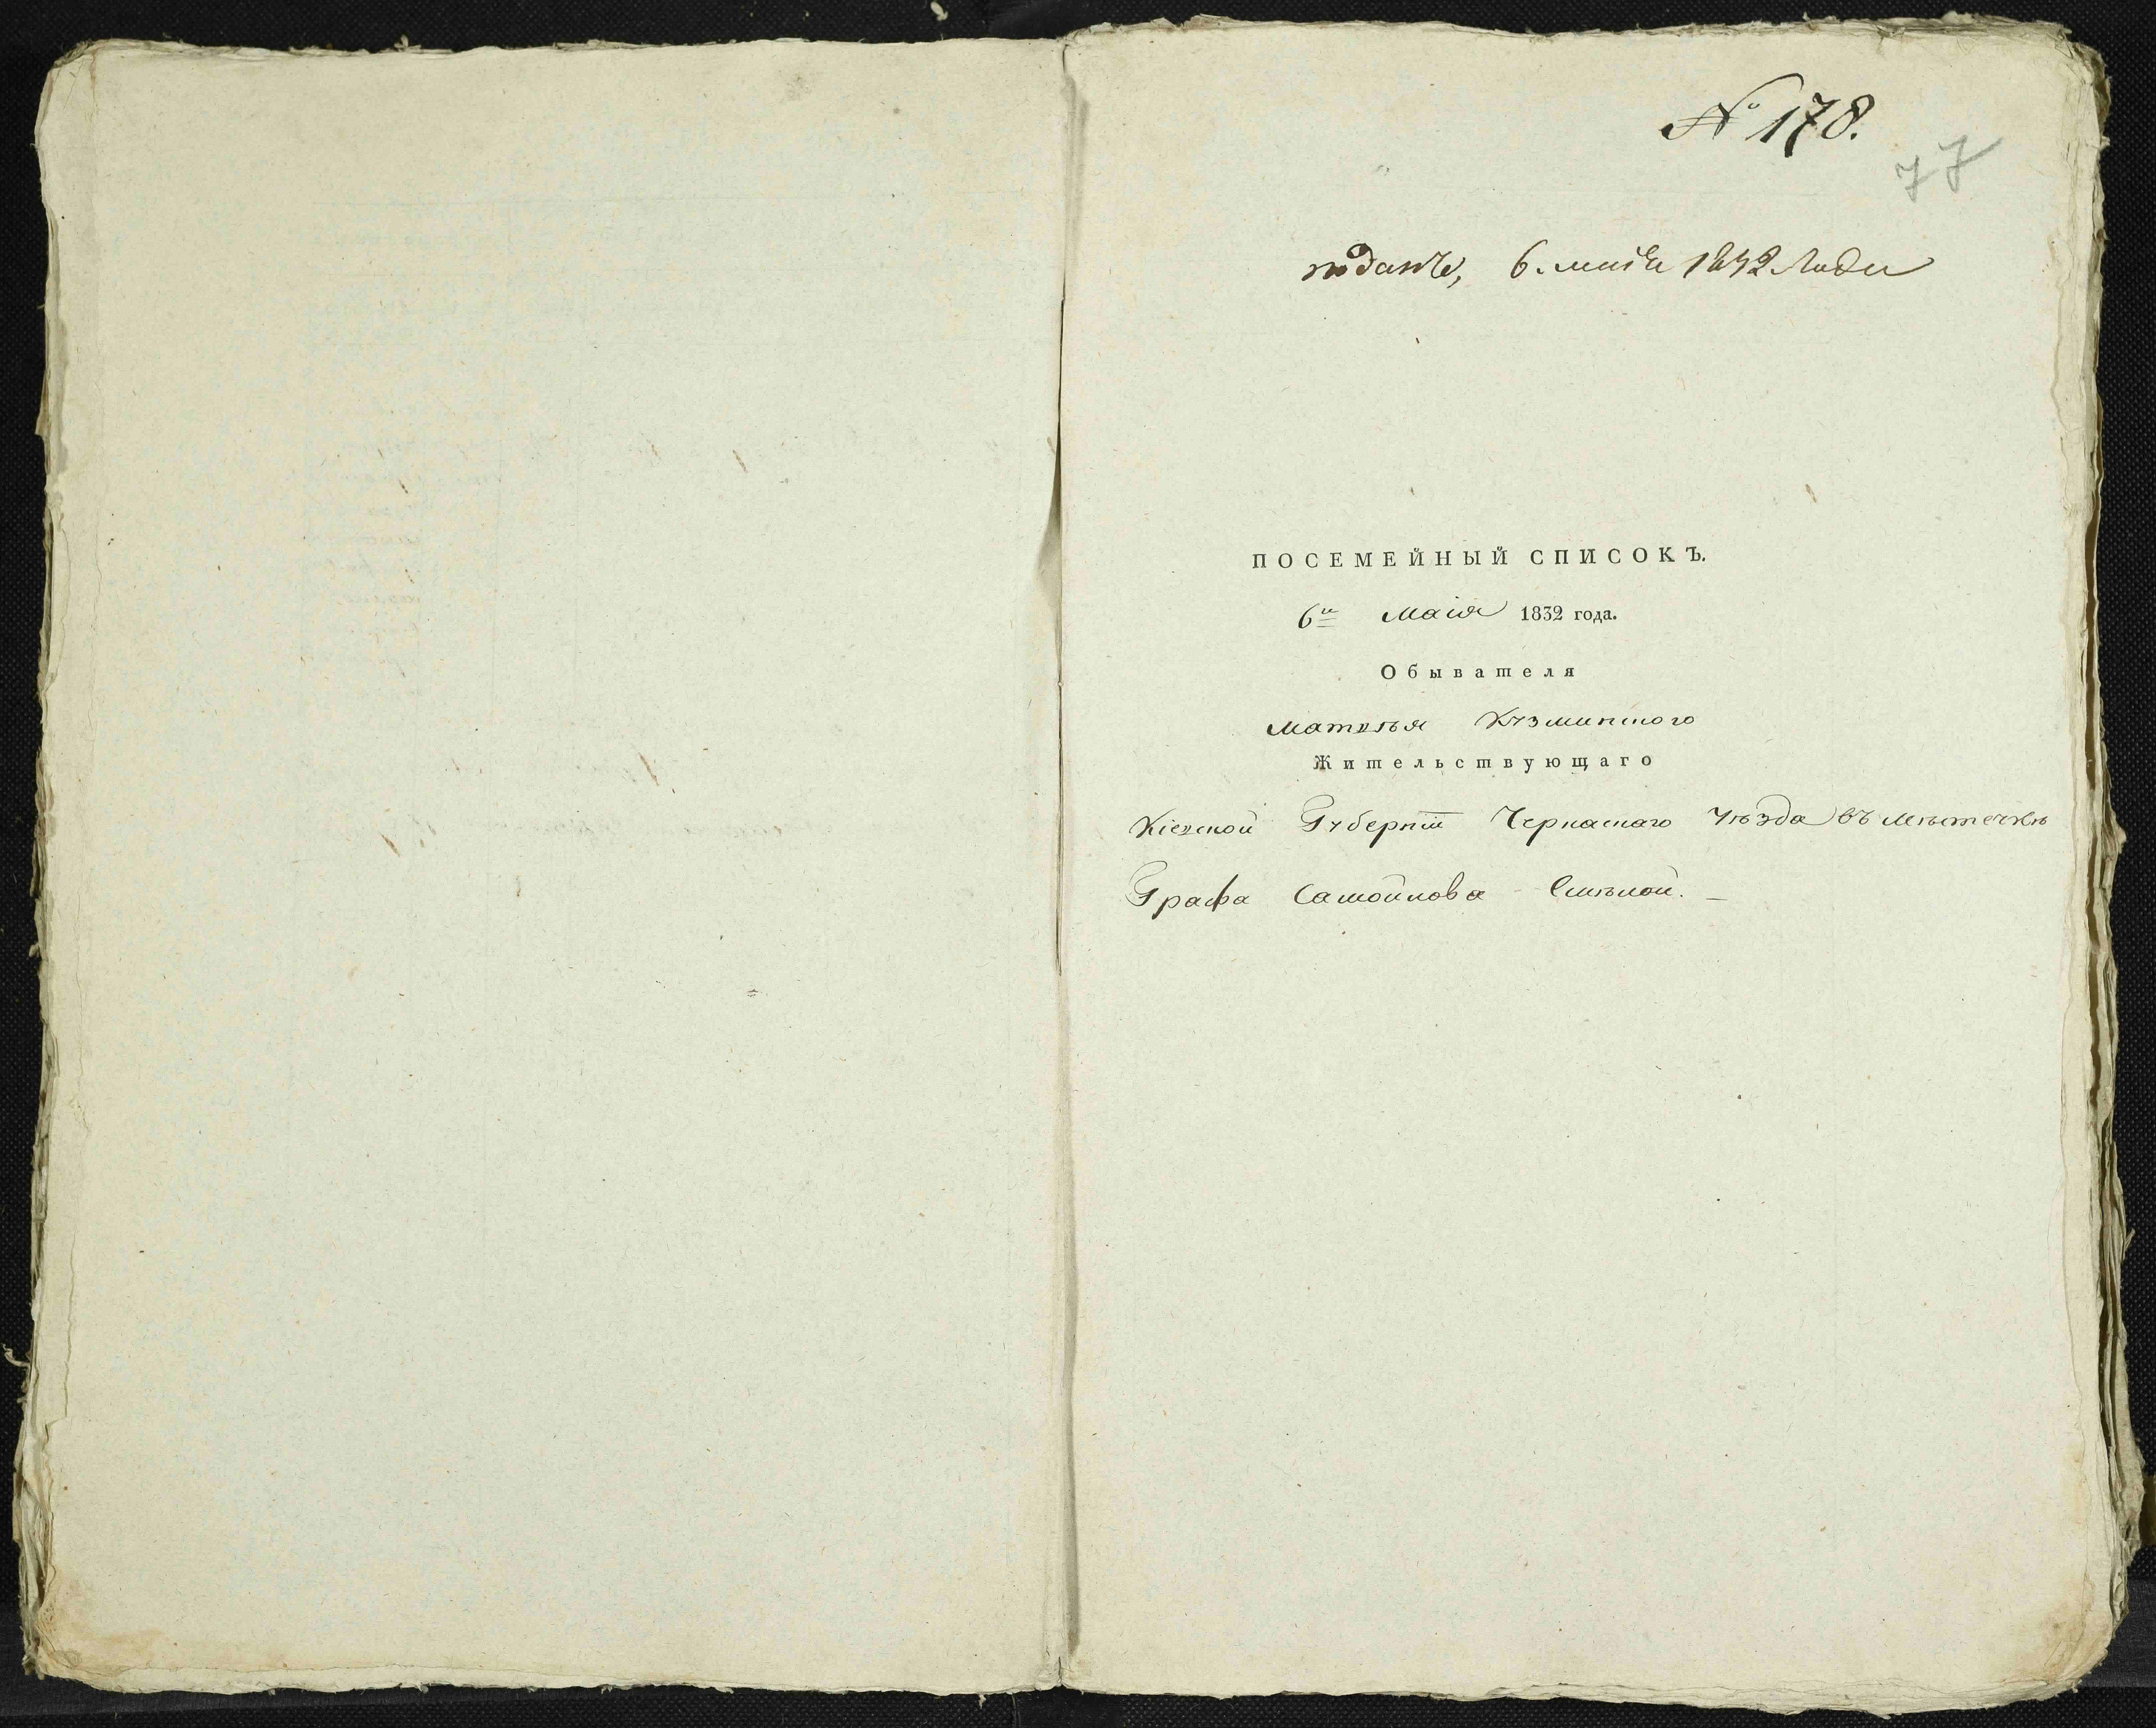 № 178.
77
поданъ, 6. маія 1832 Года
ПОСЕМЕЙНЫЙ СПИСОКЪ.
6го Маія 1832 года.
Обывателя
Матвѣя Кузминского
Жительствующаго
Кіевской Губерніи Черкаскаго Уѣзда въ мѣстечкѣ
Графа Самойлова Смѣлой. —